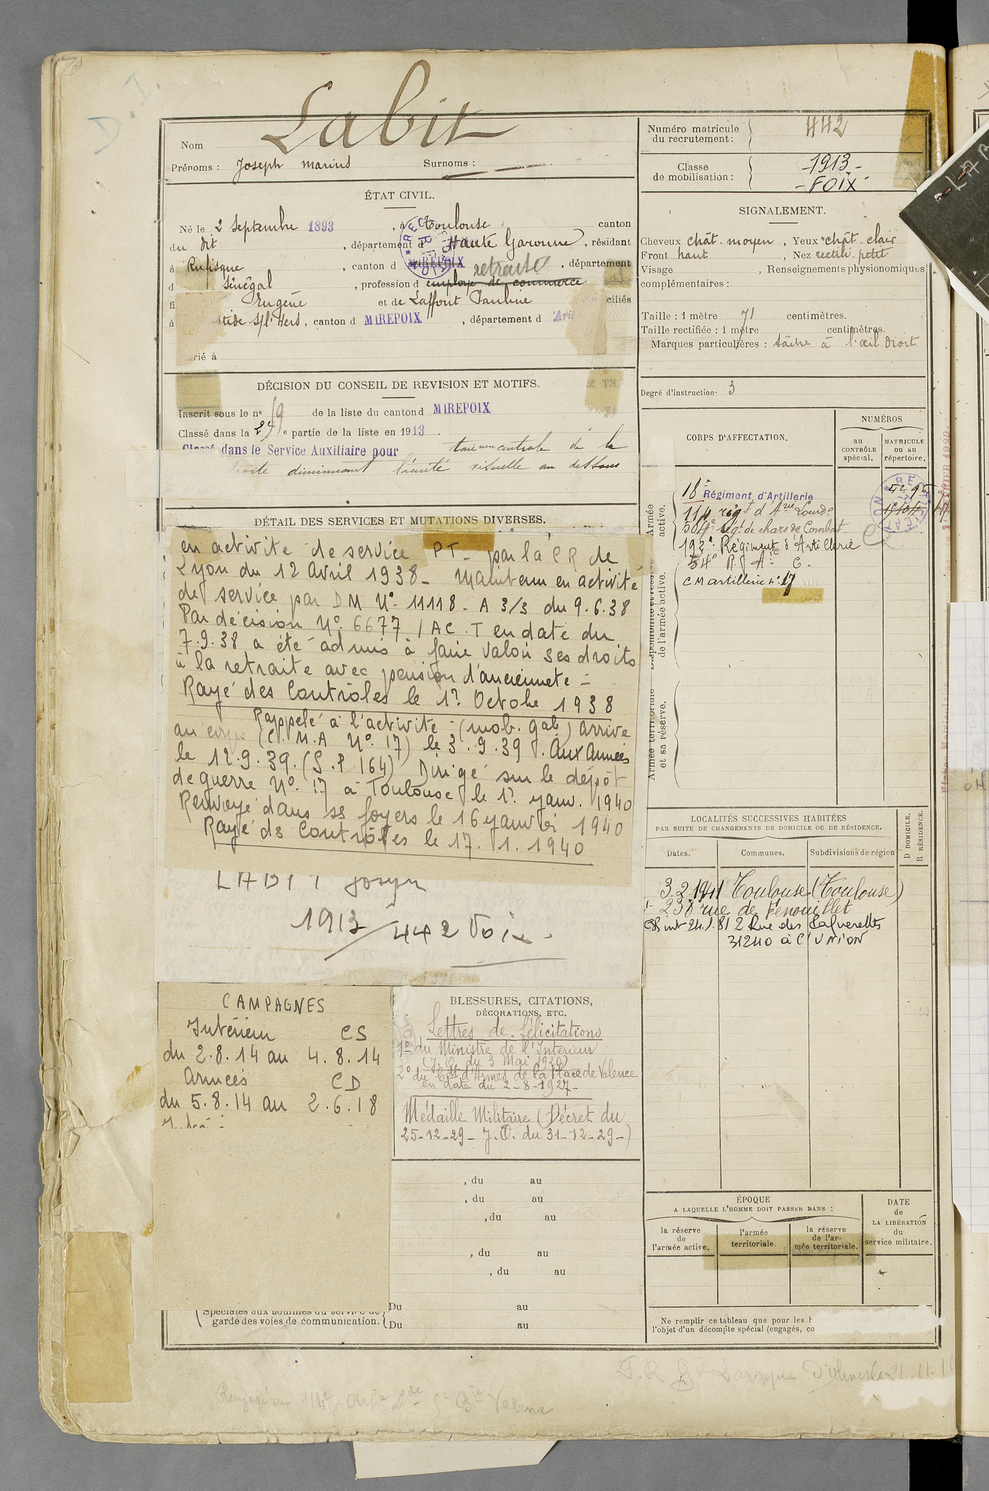 Labit
Nom
Prénoms : Joseph Marius Surnoms :
ÉTAT CIVIL.
Né le 2 Septembre 1893, à Toulouse canton
du dit, département d Haute Garonne, résidant
à Rufisque, canton d MIREPOIX, département
d Sénégal, profession d employé de commerce retraité
Eugène et de Laffont Pauline ciliés
à stide s/l'Hers, canton d MIREPOIX, département d Ari
rié à
DÉCISION DU CONSEIL DE REVISION ET MOTIFS.
Inscrit sous le n° 19 de la liste du canton d MIREPOIX
Classé dans la 2e partie de la liste en 1913.
Classé dans le Service Auxiliaire pour taie centrale de la
droite diminuant l'acuité visuelle au dessous
DÉTAIL DES SERVICES ET MUTATIONS DIVERSES.
en activité de service PT_ par la CR de
Lyon du 12 Avril 1938_ Maintenu en activité
de service par DM N° 11118 - A 3/3 du 9.6.38
Par décision N° 6677 / AC. T en date du
7.9.38 a été admis à faire valoir ses droits
à la retraite avec pension d'ancienneté -
Rayé des Controles le 1? Octobre 1938
Rappelé à l'activité (mob. gab) arrivé
au corps (C.M.A N° 17) le 3.9.39. Aux Armées
le 12.9.39. (S.P 164) Dirigé sur le dépôt
de guerre N° 17 à Toulouse le 1? janv. 1940
Renvoyé dans ss foyers le 16 janvier 1940
Rayé ds Controles le 17.1.1940
LABIT Joseph
1913 / 442 Foix.
CAMPAGNES
Intérieur CS
du 2.8.14 au 4.8.14
Armées CD
du 5.8.14 au 2.6.18
BLESSURES, CITATIONS,
DÉCORATIONS, ETC.
Lettres de félicitations
1° du Ministre de l'Intérieur
(J.O. du 3 Mai 1920)
2° du Ct d'Armes de la Place de Valence
en date du 2-8-1927-
Médaille Militaire (Décret du
25-12-29_ J.O. du 31-12-29-)
, du au
, du au
, du au
, du au
, du au
Du au
Spéciales aux hommes du service de
garde des voies de communication. Du au
Numéro matricule
du recrutement : 442
Classe
de mobilisation : 1913-
-FOIX-
SIGNALEMENT.
Cheveux chât. moyen, Yeux chât. clair
Front haut, Nez rectil. petit
Visage, Renseignements physionomiques
complémentaires :
Taille : 1 mètre 71 centimètres.
Taille rectifiée : 1 mètre centimètres.
Marques particulières : tâche à l'œil droit
Degré d'instruction : 3
CORPS D'AFFECTATION.
NUMÉROS
au
CONTRÔLE
spécial.
MATRICULE
ou au
répertoire.
18e Régiment d'Artillerie
114 régt d'Arie Lourde
504e Régt de chars de Combat
192e Régiment d'Artillerie
54e R.A. C.
CM artillerie n° 17
Armée
active.
Disponibilité et réserve
de l'armée active.
Armée territoriale
et sa réserve.
LOCALITÉS SUCCESSIVES HABITÉES
PAR SUITE DE CHANGEMENTS DE DOMICILE OU DE RÉSIDENCE.
Dates. Communes. Subdivisions de région
D DOMICILE.
R RÉSIDENCE.
3.2.1941 Toulouse (Toulouse)
238 rue de Fenouillet
24.1.81 2 Rue des
31240 à L'UNION
ÉPOQUE
A LAQUELLE L'HOMME DOIT PASSER DANS :
la réserve
de
l'armée active.
l'armée
territoriale.
la réserve
de l'ar-
mée territoriale.
DATE
de
LA LIBÉRATION
du
service militaire.
Ne remplir ce tableau que pour les
l'objet d'un décompte spécial (engagés, co